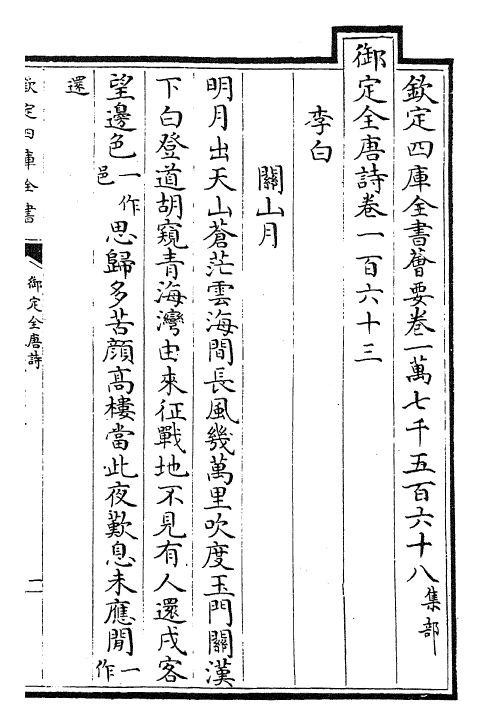 欽定四庫全書薈要卷一萬七千五百六十八集部
御定全唐詩卷一百六十三
李白
關山月
明月出天山蒼茫雲海間長風幾萬里吹度玉門關漢
下白登道胡窺青海灣由來征戰地不見有人還戍客
望邊色一作邑思歸多苦顔高樓當此夜歎息未應閒一作
還
欽定四庫全書
御定全唐詩
二